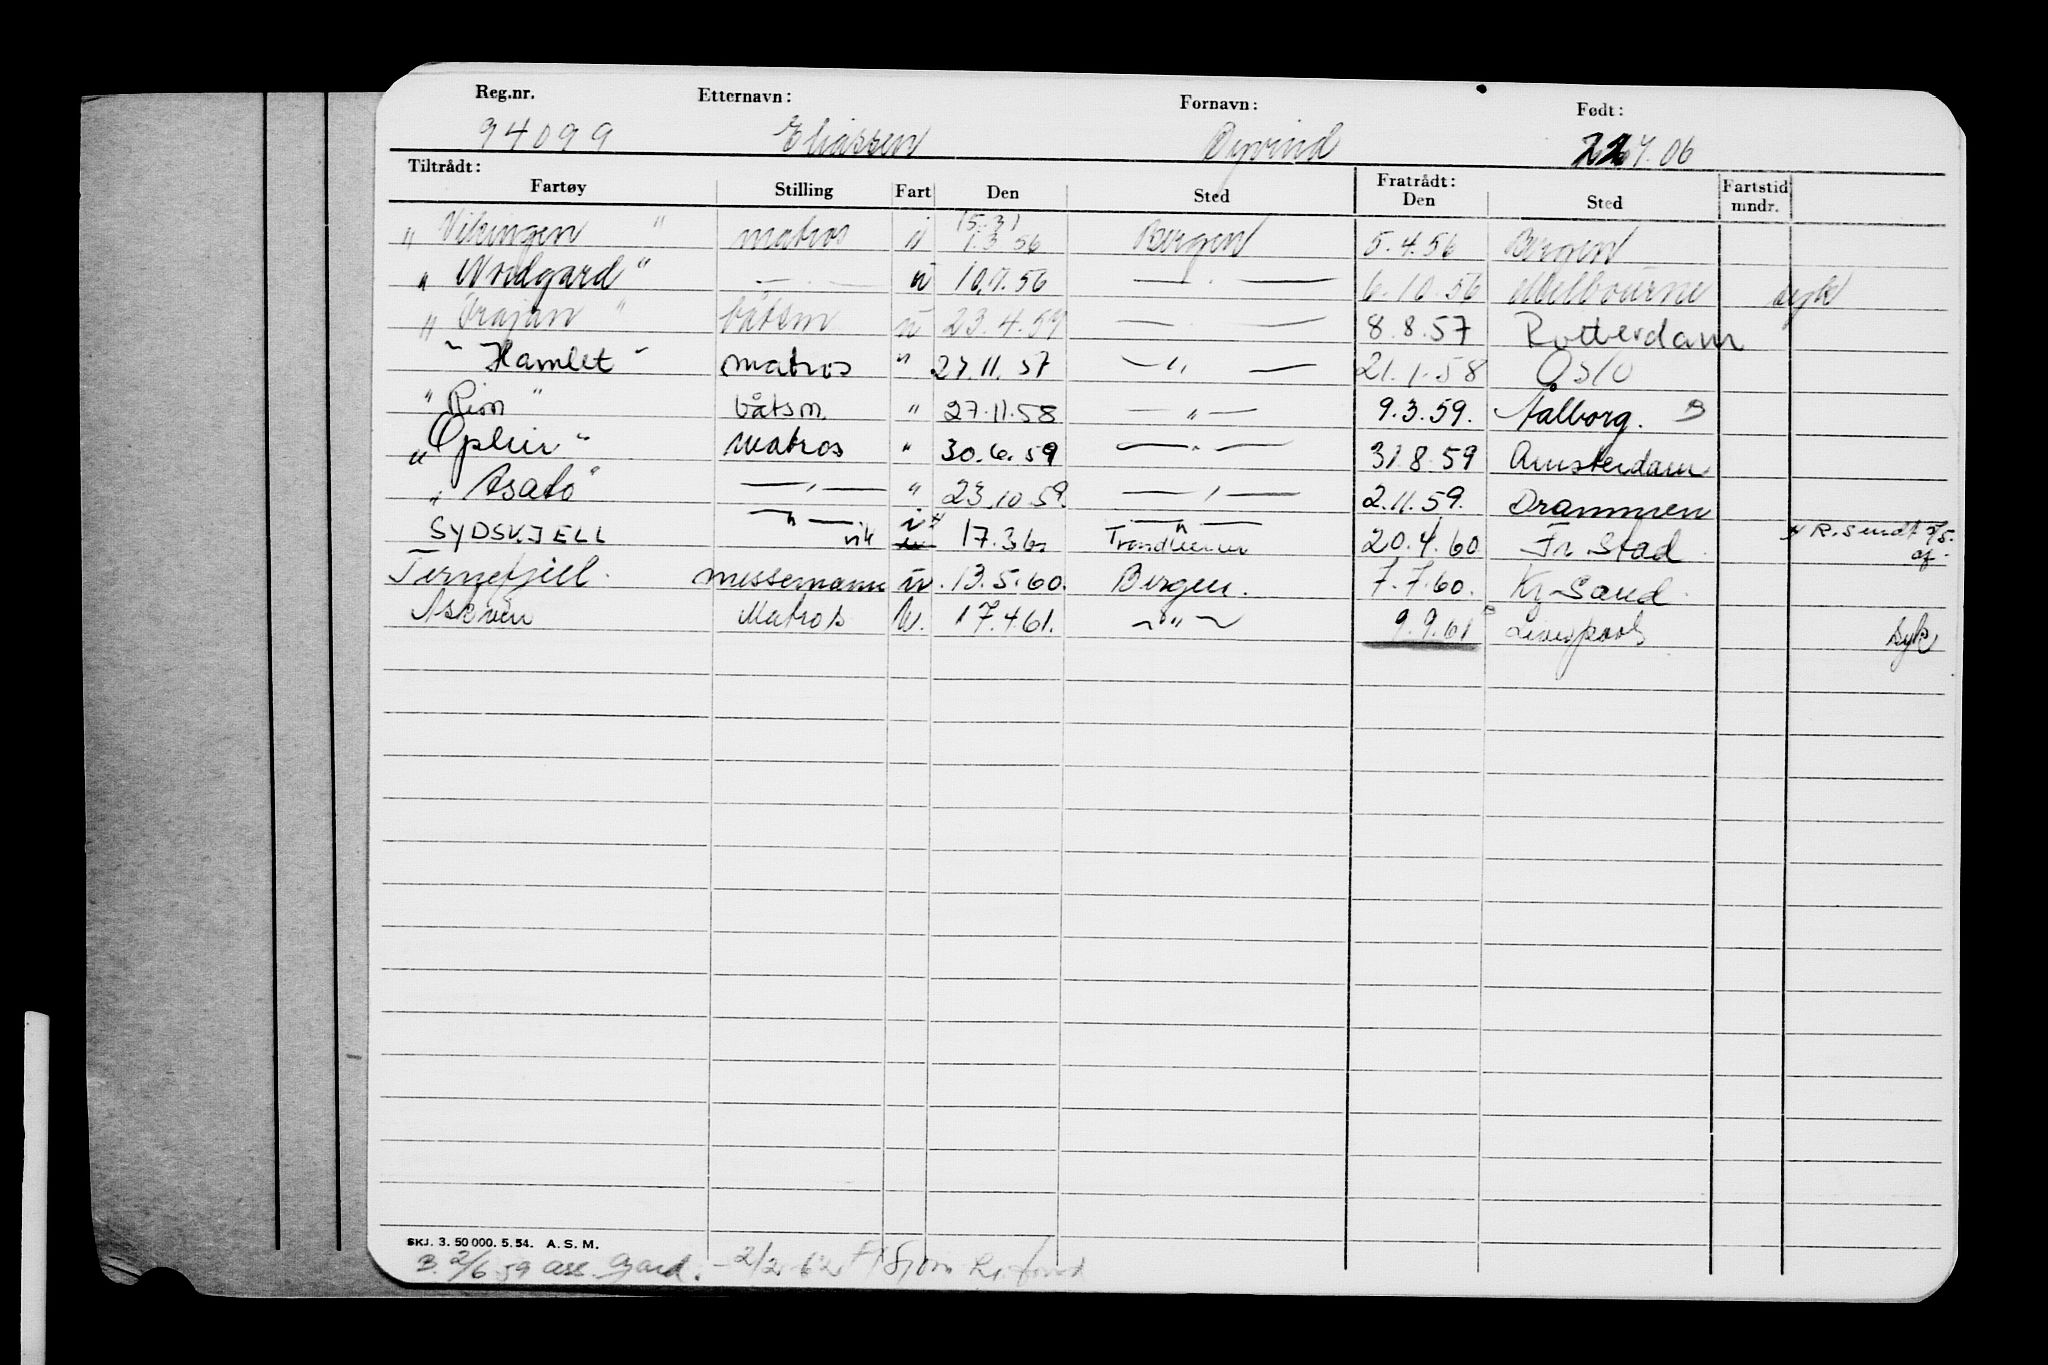 Reg.nr. Etternavn: Fornavn: Født:
94099 Eliassen Øyvind 22 7.06
Tiltrådt: Fratrådt:
Fartøy Stilling Fart Den Sted Den Sted Fartstid mndr.
(5.3)
" Vikingen " matros u 1.3 56 Bergen 5.4.56 Bergen
" Nordgard " — . — u 10.7.56 — . — 6.10.56 Melbourne syk
" Trajan " båtsm u 23.4.57 — . — 8.8.57 Rotterdam
" Hamlet " matros " 27.11.57 — " — 21.1.58 Oslo
" Rim " båtsm. " 27.11.58 — " — 9.3.59. Aalborg. B
" Ophir " matros " 30.6.59 — " — 31.8.59 Amsterdam
" Asato " — " — " 23.10.59. — " — 2.11.59. Drammen
SYDSKJELL — " — vik i 17.3.60 Trondheim 20.4.60 Fr. Stad R. sendt
Ternefjell. messemann u. 13.5.60. Bergen. 7.7.60. Kr. Sand.
Askvin Matros U. 17.4.61. — " — 9.9.61 Liverpool Syk
SKJ. 3. 50 000. 5. 54. A. S. M.
B. 2/6 59 ass. Gjard. - 2/2 62